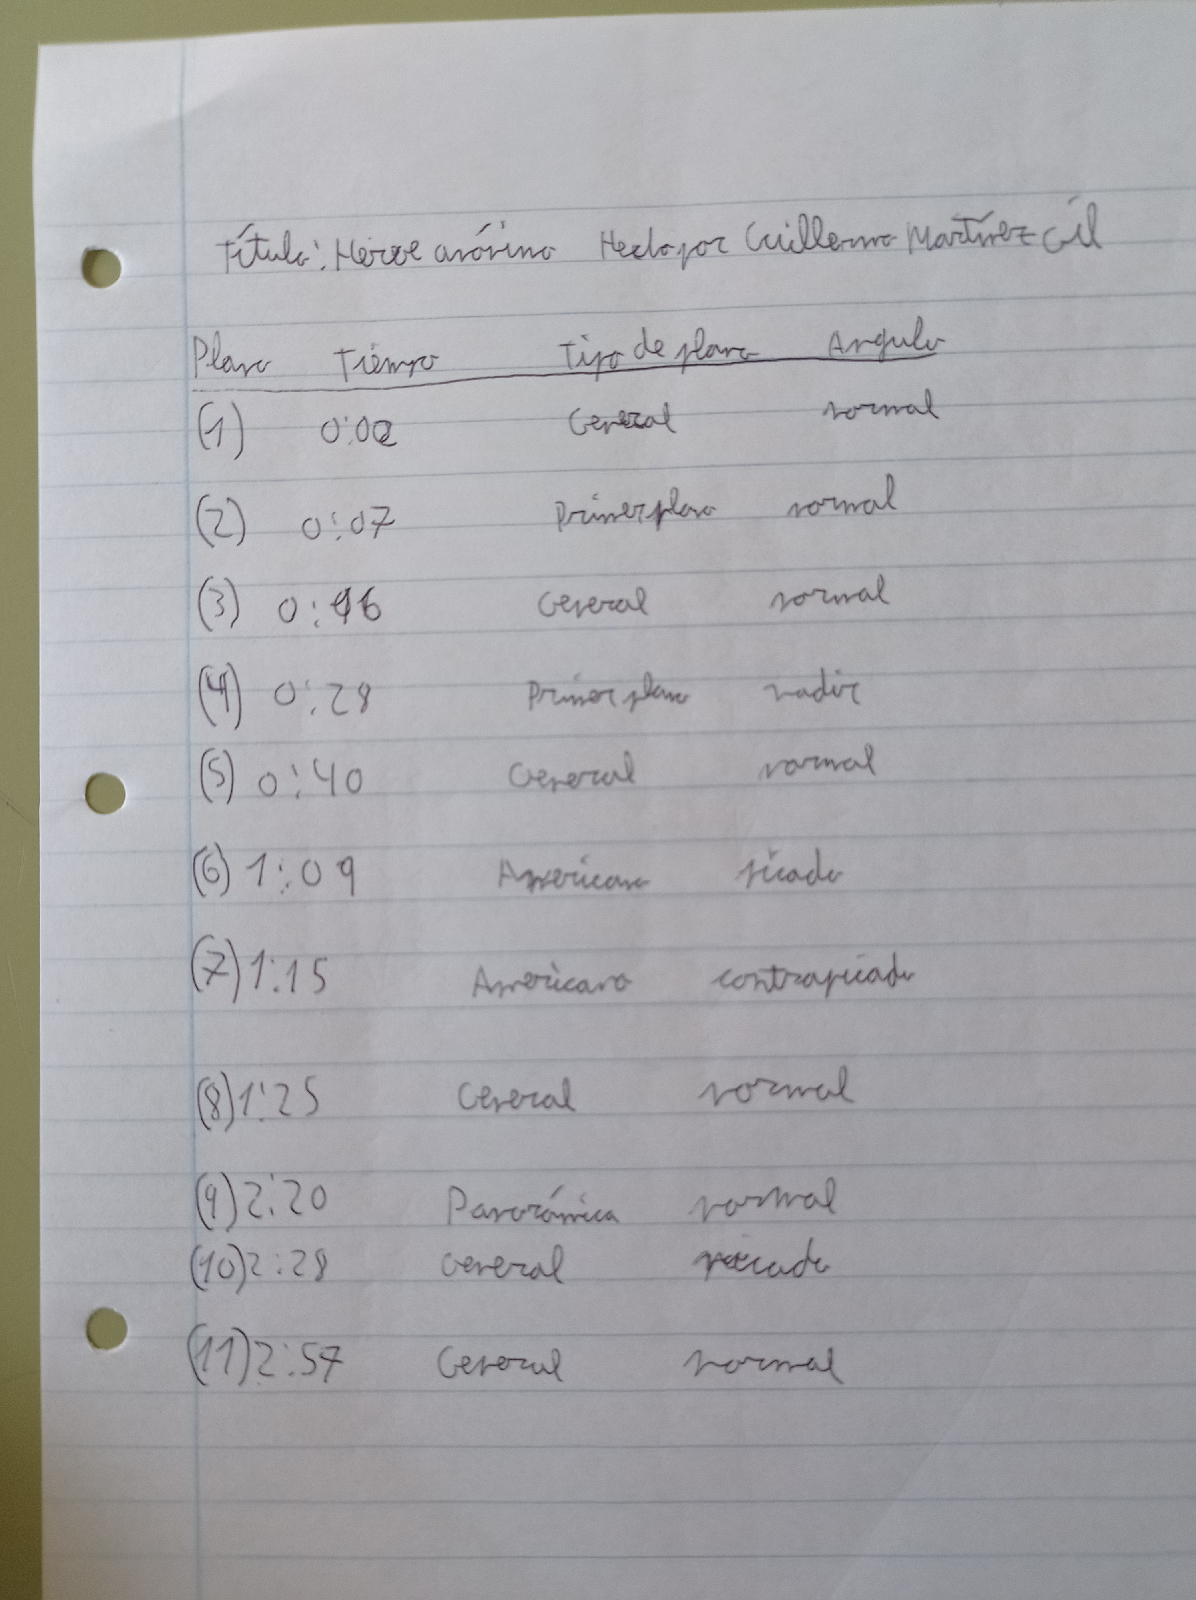 Título: Héroe anónimo Hecho por Guillermo Martínez Gil
Plano Tiempo Tipo de plano Angulo
(1) 0:00 General normal
(2) 0:07 Primer plano normal
(3) 0:16 General normal
(4) 0:28 Primer plano nadir
(5) 0:40 General normal
(6) 1:09 Americano picado
(7) 1:15 Americano contrapicado
(8) 1:25 General normal
(9) 2:20 Panorámica normal
(10) 2:28 General picado
(11) 2:57 General normal